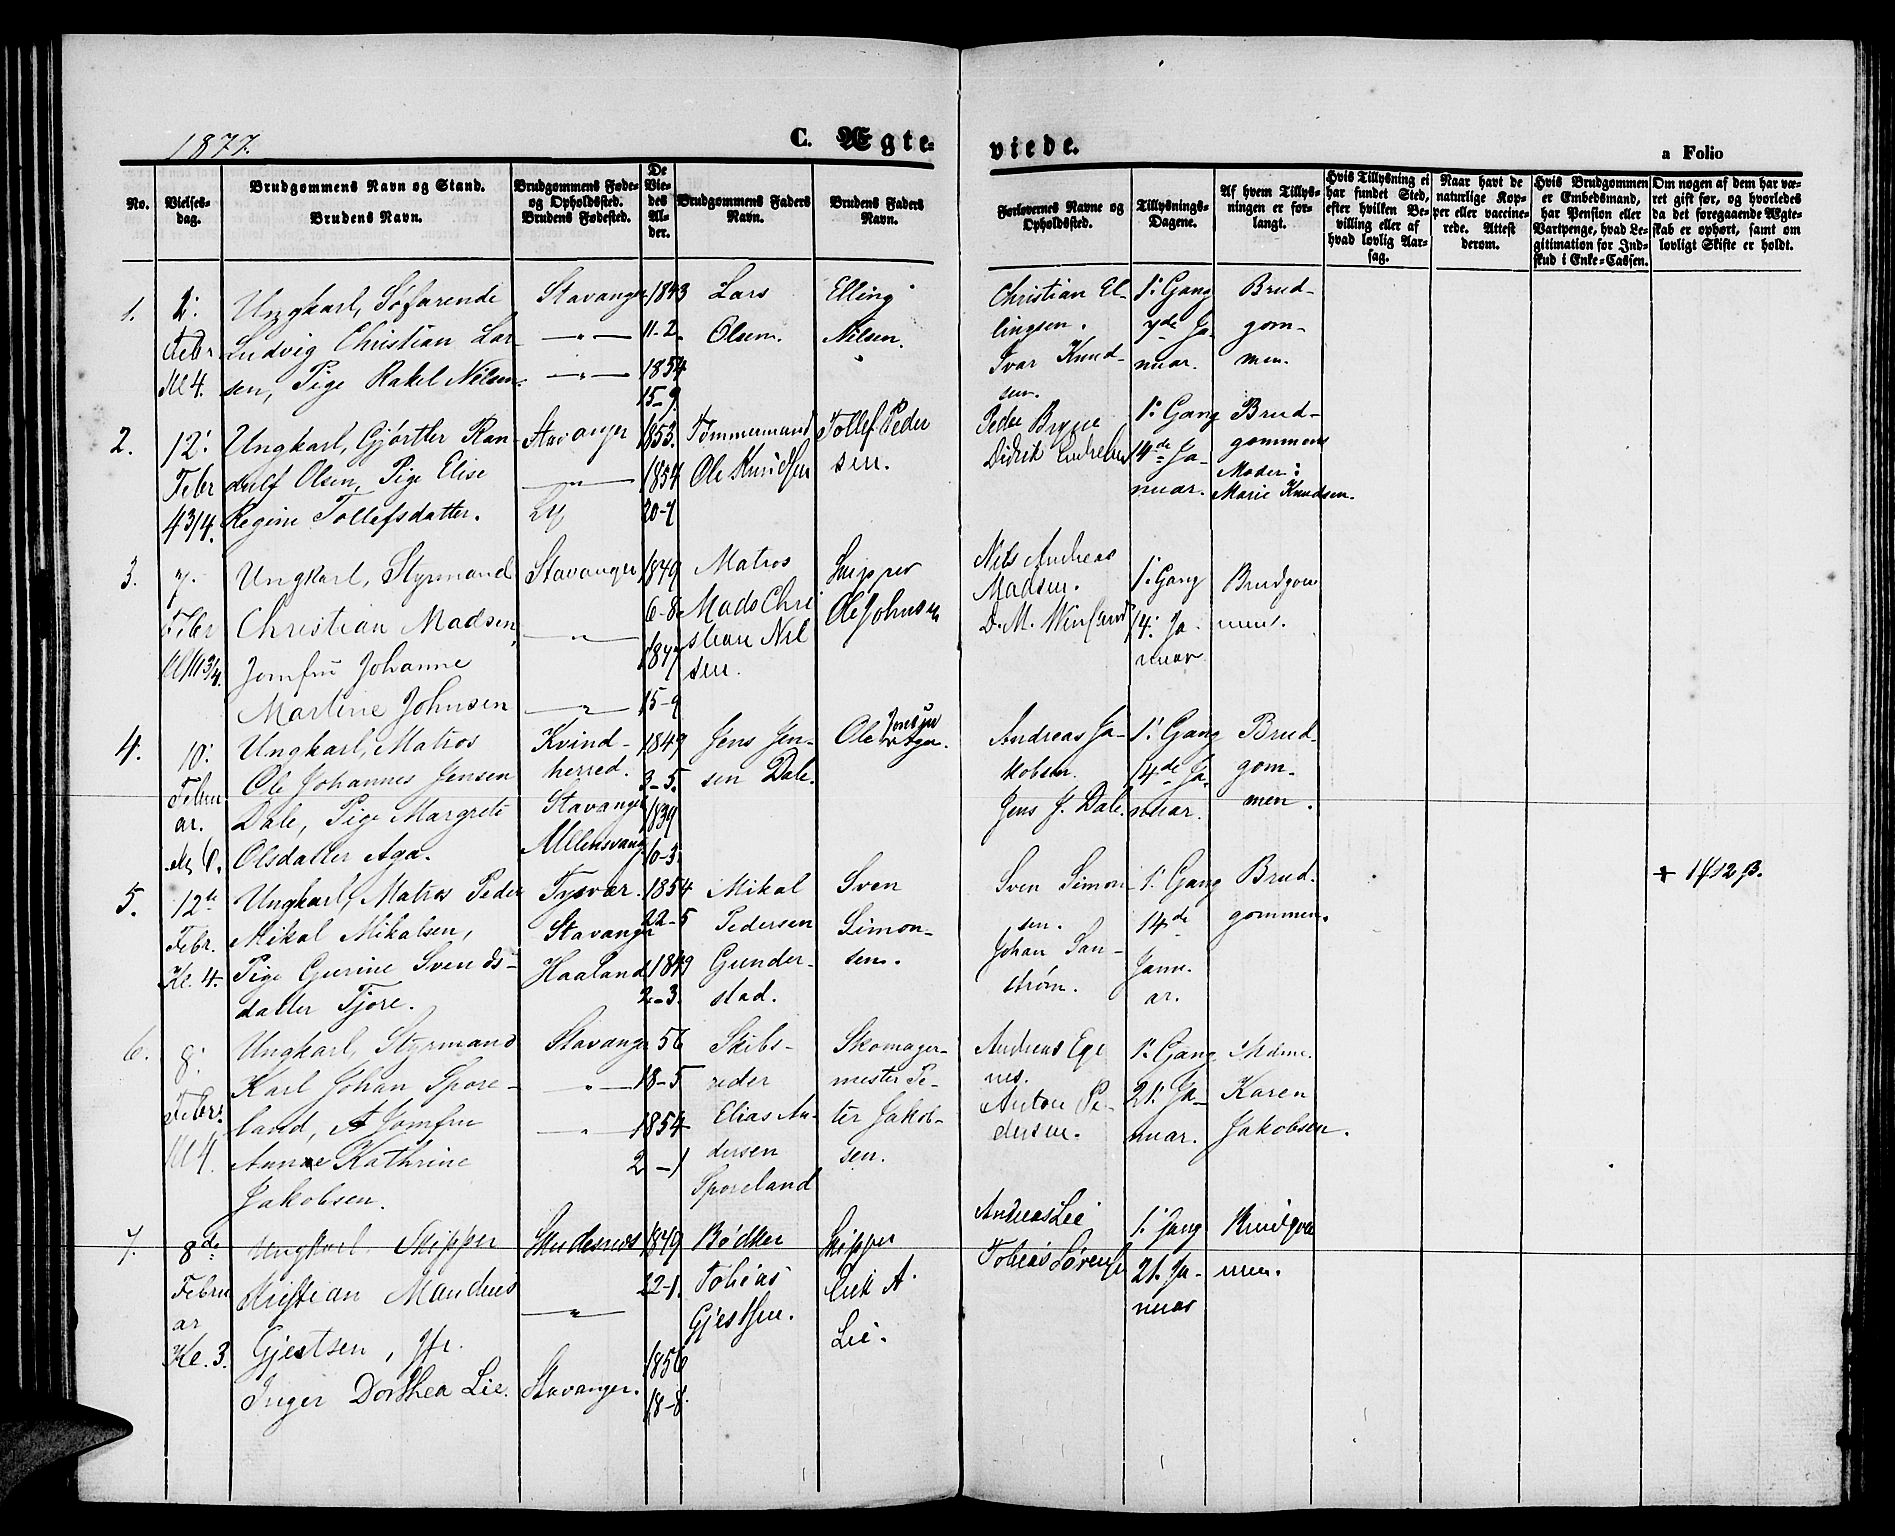 1877.
C. Ægteviede.
a Folio
No.
Vielsesdag.
Brudgommens Navn og Stand.
Brudens Navn.
Brudgommens Føde- og Opholdsted.
Brudens Fødested.
De Viedes Alder.
Brudgommens Faders Navn.
Brudens Faders Navn.
Forlovernes Navne og Opholdsted.
Tillysnings-Dagene.
Af hvem Tillysningen er forlangt.
Hvis Tillysning ei har fundet Sted, efter hvilken Bevilling eller af hvad lovlig Aarsag.
Naar havt de naturlige Kopper eller vaccinerede. Attest derom.
Hvis Brudgommen er Embedsmand, har Pension eller Vartpenge, hvad Legitimation for Indskud i Enke-Cassen.
Om nogen af dem har været gift før, og hvorledes da det foregaaende Ægteskab er ophørt, samt om lovligt Skifte er holdt.
1.
Febr
Kl 4.
Ungkarl, Søfarende
Ludvig Christian Lar-
sen, Pige Rakel Nilsen.
Stavanger
—"—
—"—
1843
11-2.
1854
15-9.
Lars
Olsen.
Elling
Nilsen.
Christian El-
lingsen.
Ivar Knud-
sen.
1: Gang
7de Ja-
nuar.
Brud-
gom-
men.
2.
12:
Febr
4 3/4.
Ungkarl, Gjørtler Ran-
dulf Olsen, Pige Elise
Regine Tollefsdatter.
Stavanger
—"—
1853.
1854
20-7
Tømmermand
Ole Knudsen
Tollef Peder
sen.
Peder Bryne
Didrik
1: Gang
14de Ja-
nuar.
Brud-
gommens
Moder:
Marie Knudsen.
3.
7.
Febr
Ungkarl, Styrmand
Christian Madsen,
Jomfru Johanne
Martine Johnsen
Stavanger
—"—
—"—
1849
6-8
1847
15-9
Matros
Mads Chri
stian Nil
sen.
Skipper
Ole Johnsen
Nils Andreas
Madsen.
1: Gang
14: Ja-
nuar
Brudgom
mens.
4.
10:
Febru
ar.
Kl 6.
Ungkarl, Matros
Ole Johannes Jensen
Dale, Pige Margrete
Olsdatter Aga.
Kvind-
herred.
Stavanger
Ullensvang
1849
3-5.
1839
10-3.
Jens Jen-
sen Dale.
Ole
Aga.
Andreas Ja-
kobsen.
Jens J. Dale.
1: Gang
14de Ja-
nuar.
Brud-
gom-
men.
5.
12te
Febr.
Kl. 4.
Ungkarl, Matros Peder
Mikal Mikalsen,
Pige Gurine Svends-
datter Tjore.
Tysvær.
Stavanger
Haaland
1854
22-5
1849
2-3.
Mikal
Pedersen
Gunder-
stad.
Sven
Simon-
sen.
Sven Simon-
sen.
Johan San-
strøm.
1: Gang
14de
Janu-
ar.
Brud-
gommen.
6.
8:
Febr.
Kl 4.
Ungkarl, Styrmand
Karl Johan Spore-
land, Jomfru
Anne Kathrine
Jakobsen.
Stavanger
—"—
—"—
56
18-5
1854
2-1
Skibs-
reder
Elias An-
dersen
Sporeland
Skomager-
mester Pe-
ter Jakob-
sen.
Andreas Ege
nes.
Anton Pe-
dersen.
1: Gang
21: Ja-
nuar.
Karen
Jakobsen.
7.
8de
Febru
ar
Kl. 3.
Ungkarl Skipper
Kristian Mandius
Gjestsen, Jfr.
Inger Dorthea Lie.
Skudesnes
—"—
Stavanger.
1849
22-1.
1856
18-8.
Bødker
Tobias
Gjestsen.
Skipper
Erik A
Lie.
Andreas Lie
Tobias Sørensen
1: Gang
21. Ja-
nuar
Brudgom
men.